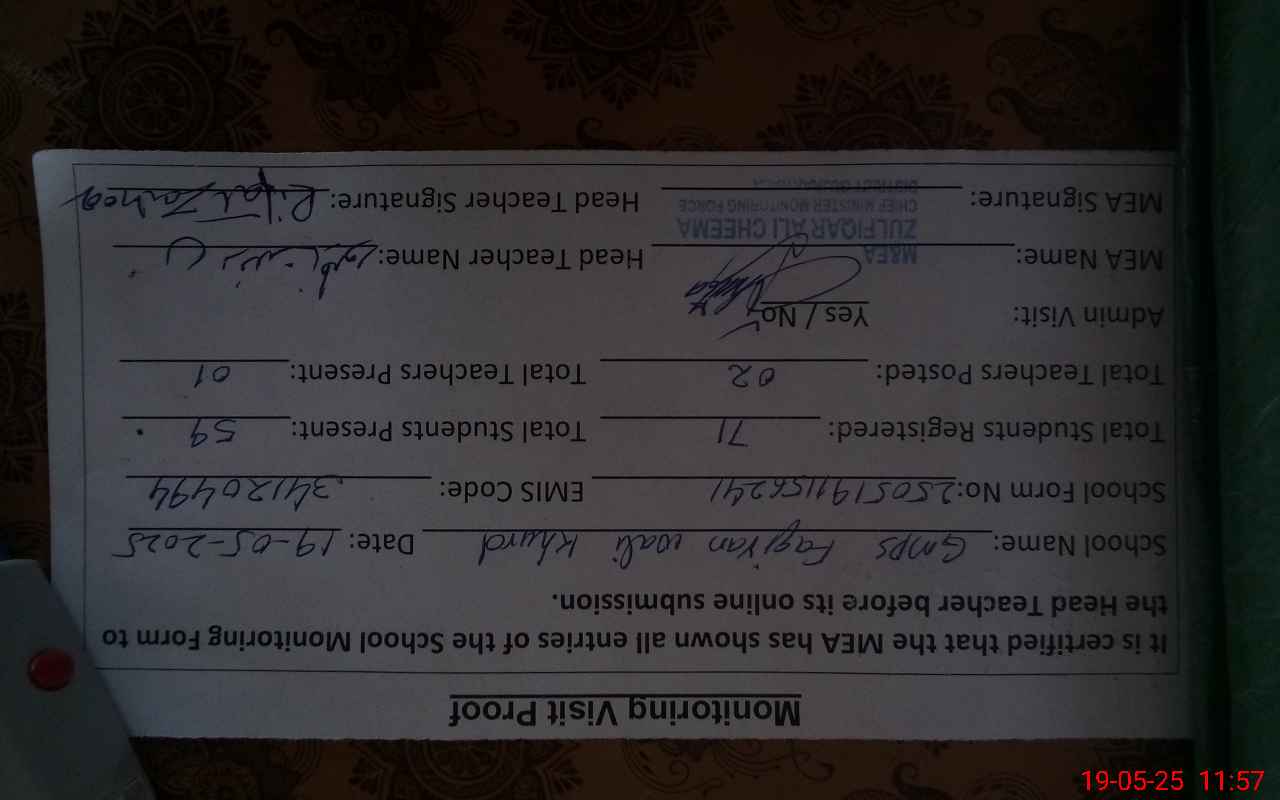 Monitoring Visit Proof
It is certified that the MEA has shown all entries of the School Monitoring Form to
the Head Teacher before its online submission.
School Name: GMPS Faqiran wali Khurd Date: 19-05-2025
School Form No: 2505191156241 EMIS Code: 34120494
Total Students Registered: 71 Total Students Present: 59
Total Teachers Posted: 02 Total Teachers Present: 01
Admin Visit: Yes / No
MEA Name: Head Teacher Name:
M&EA
ZULFIQAR ALI CHEEMA
CHIEF MINISTER MONITORING FORCE
MEA Signature: Head Teacher Signature:
19-05-25 11:57